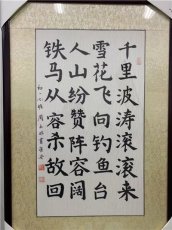 千里波涛滚滚来
雪花飞向钓鱼台
人山纷赞阵容阔
铁马从容杀敌回